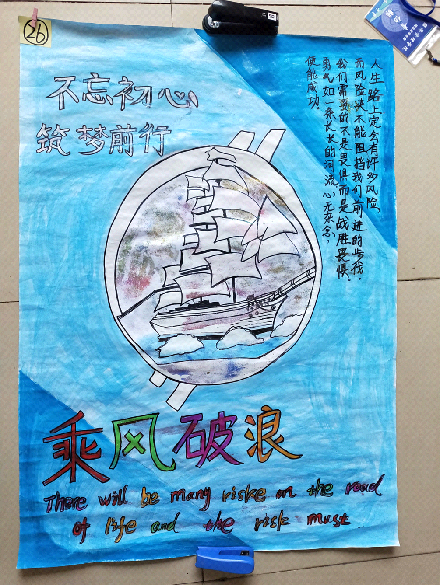 26
不忘初心
筑梦前行
人生路上定会有许多风险,
而风险决不能阻挡我们前进的步伐.
我们需要的不是畏惧而是战胜畏惧.
勇气如一条长长的河流,心无杂念,
便能成功.
乘风破浪
There will be many riske on the road
of life and the risk must